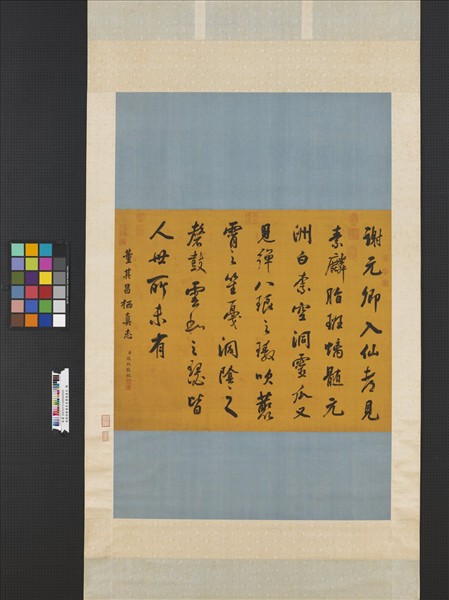 謝元卿入仙都見
素麟脂斑螭髓元
洲白柰空洞靈瓜又
見彈八琅之璈吹叢
霄之笙戛洞陰之
磬鼓雲和之瑟皆
人世所未有
董其昌栖真志